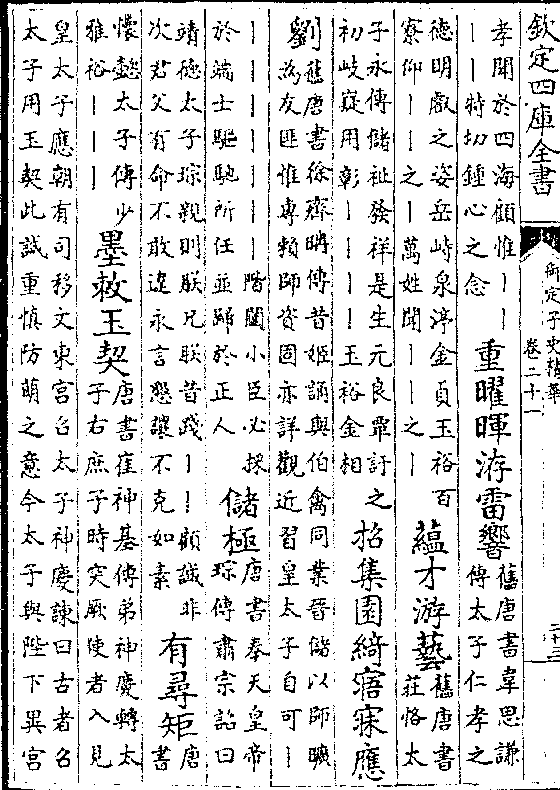 欽定四庫全書
御定子史精華
卷二十一
孝聞於四海顧惟丨丨
丨丨特切鍾心之念
重曜暉洊雷響
舊唐書韋思謙
傳太子仁孝之
德明叡之姿岳峙泉渟金貞玉裕百
寮仰丨丨之丨萬姓聞丨丨之丨
蘊才游藝
舊唐書
莊恪太
子永傳儲祉發祥是生元良眾訏之
初岐嶷用彰丨丨丨丨玉裕金相
招集園綺寤寐應
劉
舊唐書徐齊聃傳昔姬誦與伯禽同業晉儲以師曠
為友匪惟專賴師資固亦詳觀近習皇太子自可丨
丨丨丨丨丨丨丨階闥小臣必採
於端士驅馳所任並歸於正人
儲極
唐書奉天皇帝
琮傳肅宗詔曰
靖德太子琮親則朕兄朕昔踐丨丨顧誠非
次君父有命不敢違永言懇讓不克如素
有尋矩
唐
書
懷懿太子傳少
雅裕丨丨丨
墨敕玉契
唐書崔神基傳弟神慶轉太
子右庶子時突厥使者入見
皇太子應朝有司移文東宮召太子神慶諫曰古者召
太子用玉契此誠重慎防萌之意今太子與陛下異宮